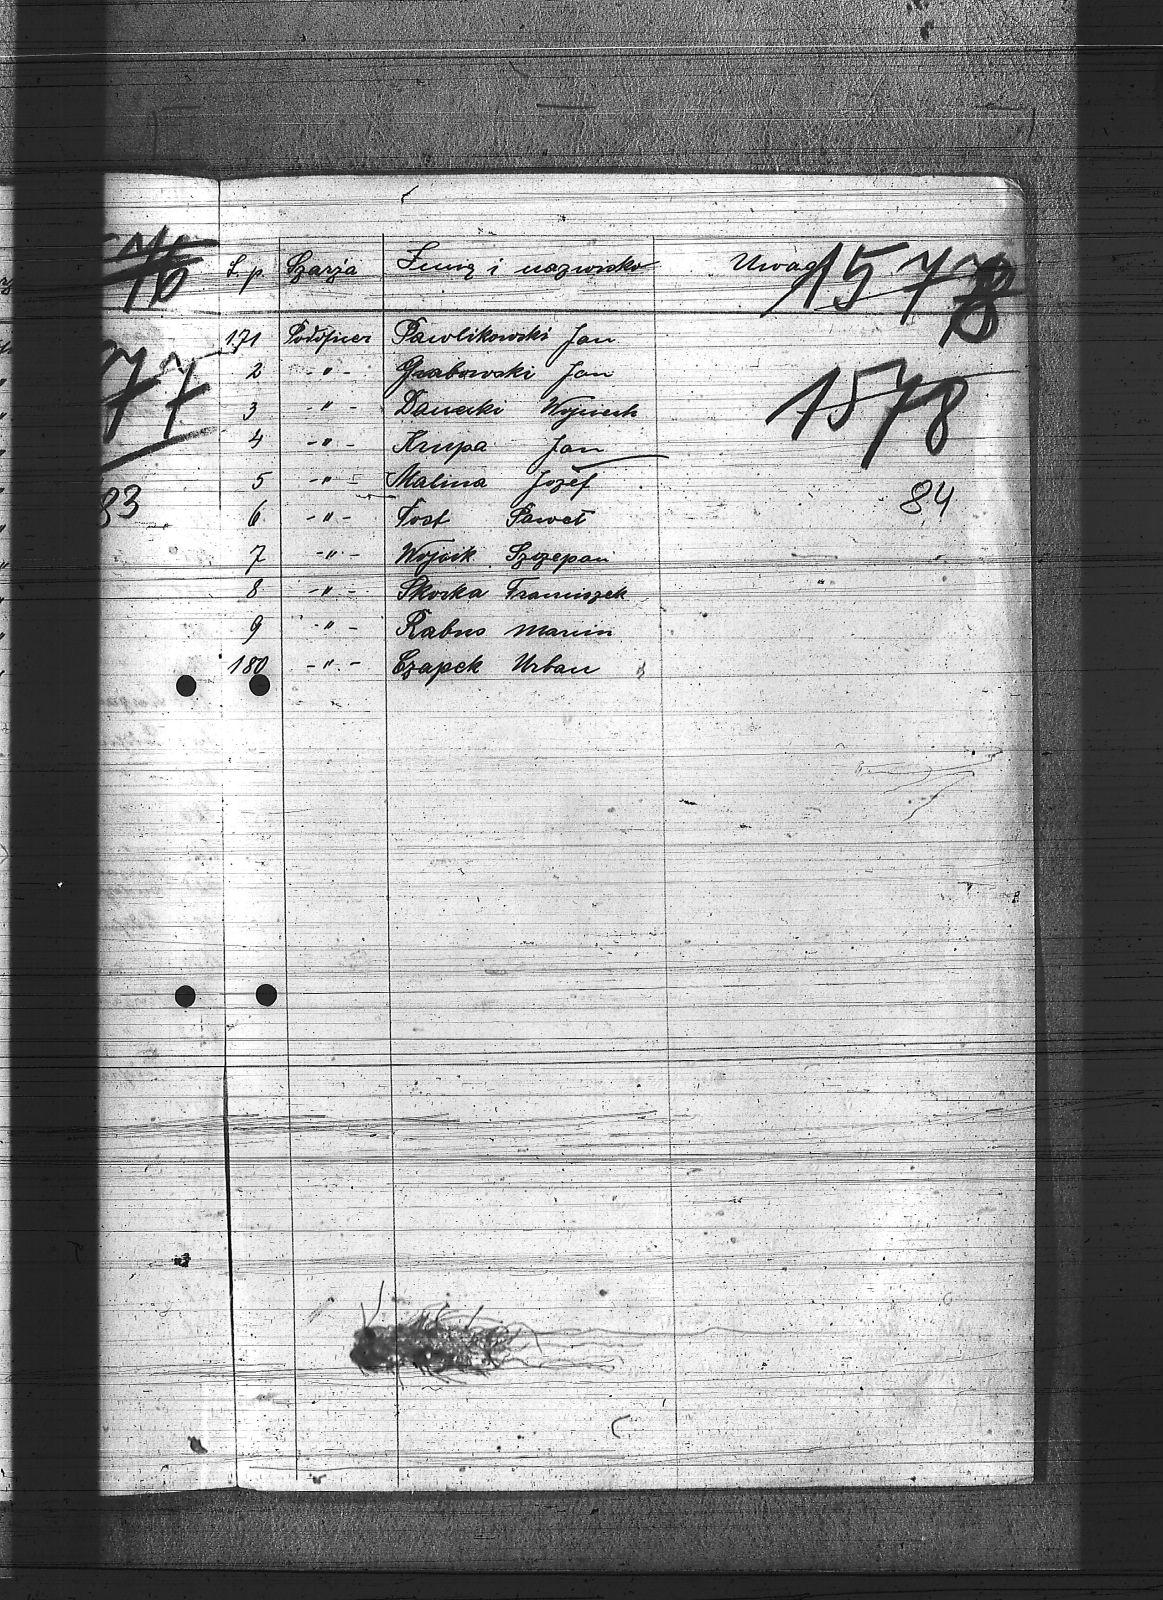 L. p. Szarża Imię i nazwisko Uwagi 1578
171 Podoficer Pawlikowski Jan
2 -"- Grabowski Jan 1578
3 -"- Danecki Wojciech
4 -"- Krupa Jan
5 -"- Malina Józef 84
6 -"- Tost Paweł
7 -"- Wójcik Szczepan
8 -"- Skorka Franciszek
9 -"- Rabus Marcin
180 -"- Czapek Urban
76
77
83